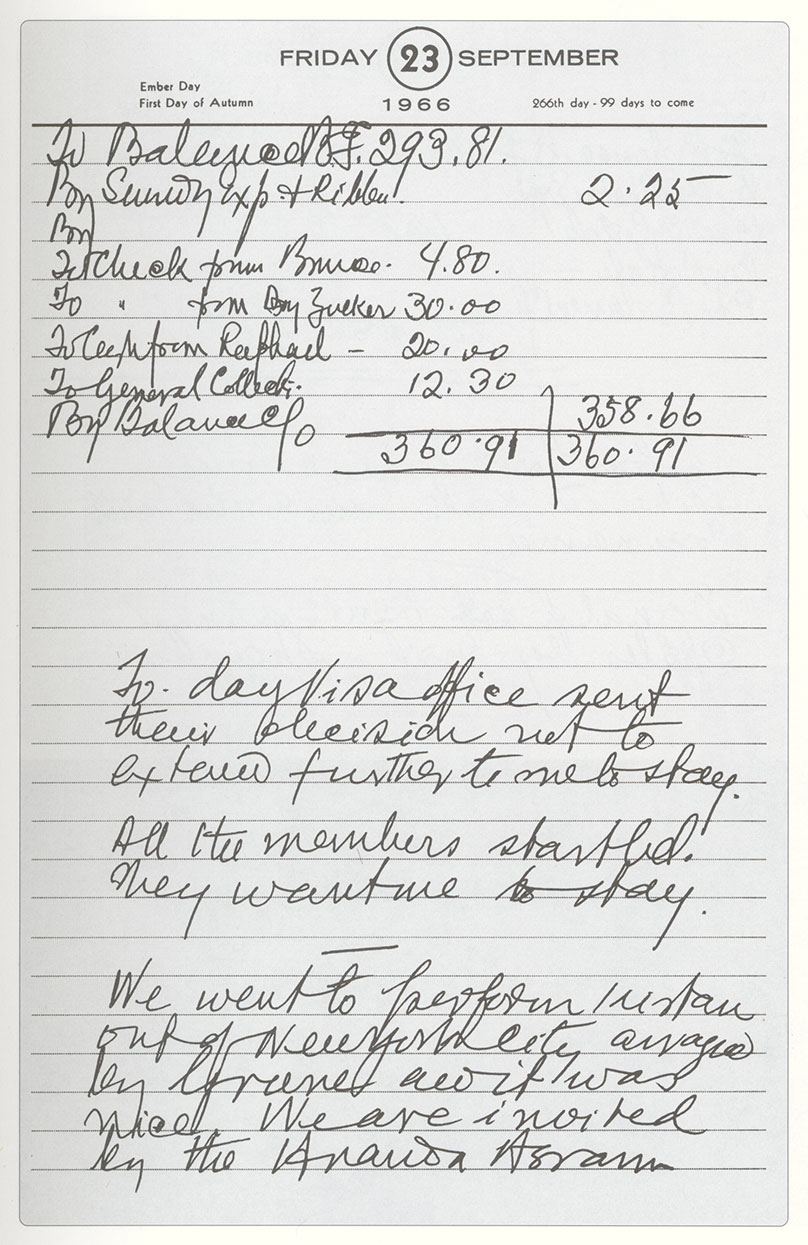 FRIDAY 23 SEPTEMBER
Ember Day
First Day of Autumn
1966
266th day - 99 days to come
To Balance B.F. 293.81.
By Sundry Exp. + Ribbon. 2.25
By
To Check from Bruce. 4.80.
To " from By Zucker 30.00
To Cash from Raphael - 20.00
To General Collecti. 12.30
By Balance C/o 358.66
360.91 360.91
To-day Visa office sent
their decision not to
extend further to me to stay.
All the members startled.
They want me to stay.
We went to perform
out of New York City
by and it was
nice. We are invited
by the Ananda Asram